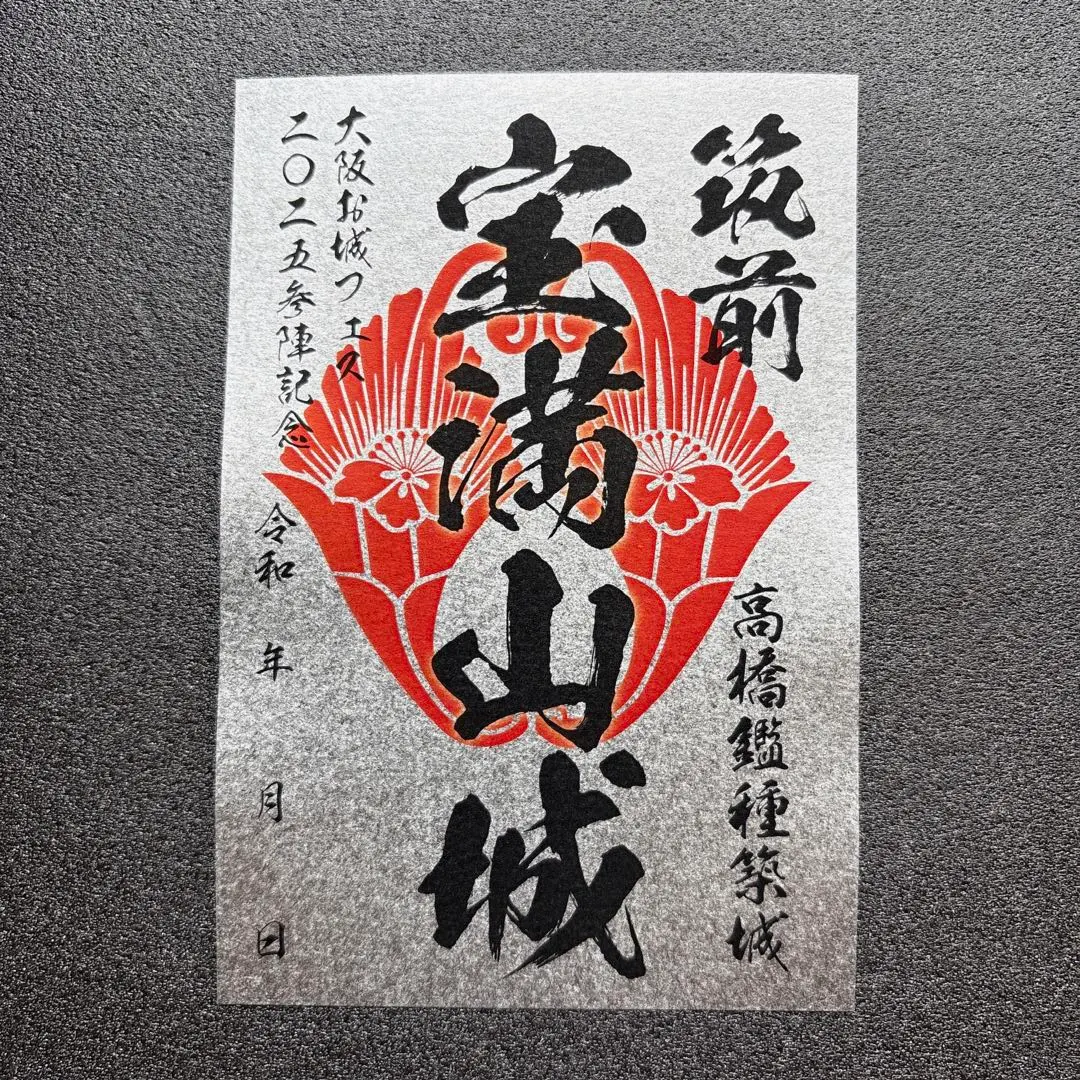 筑前
宝満山城
高橋鑑種築城
大阪お城フェス
二〇二五参陣記念
令和 年 月 日